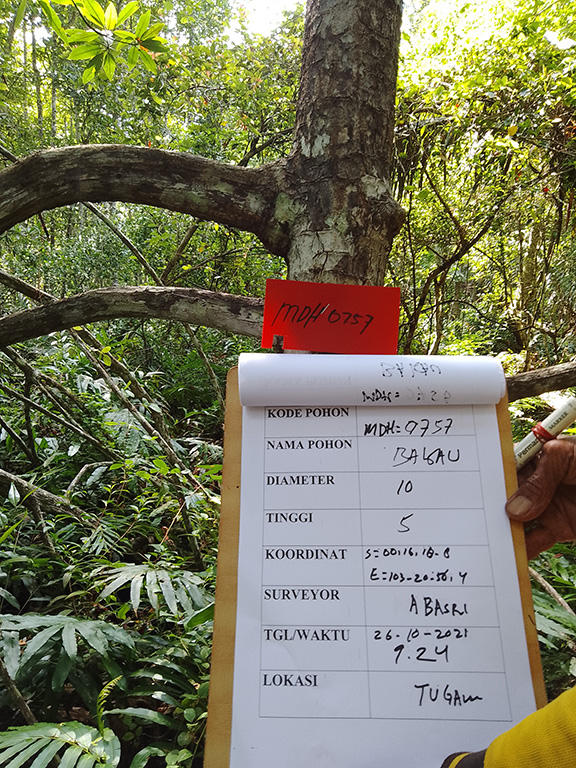 MDH 0757
KODE POHON MDH=0757
NAMA POHON BAKAU
DIAMETER 10
TINGGI 5
KOORDINAT S=00:16,18.8
E=103-20:56,4
SURVEYOR ABASRI
TGL/WAKTU 26-10-2021
9.24
LOKASI
MARKER